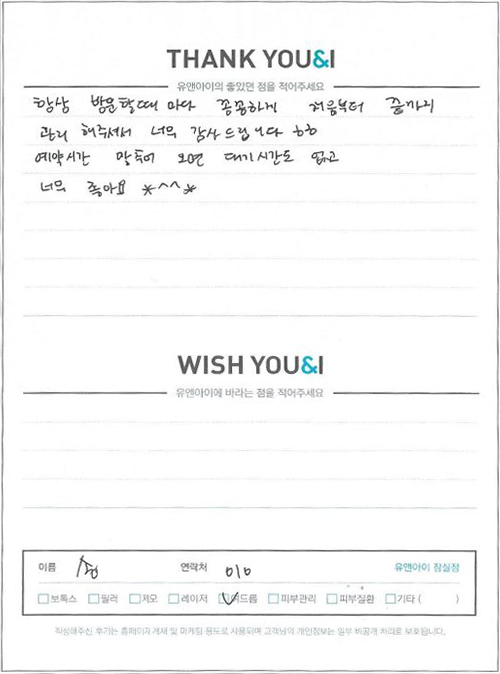 THANK YOU&I
유앤아이의 좋았던 점을 적어주세요
항상 방문할때 마다 꼼꼼하게 처음부터 끝까지
관리 해주셔서 너무 감사드립니다 bb
예약시간 맞추어 오면 대기시간도 없고
너무 좋아요 *^^*
WISH YOU&I
유앤아이에 바라는 점을 적어주세요
이름 연락처 010 유앤아이 잠실점
보톡스 필러 제모 레이저 여드름 피부관리 피부질환 기타 ( )
작성해주신 후기는 홈페이지 게재 및 마케팅 용도로 사용되며 고객님의 개인정보는 일부 비공개 처리로 보호됩니다.